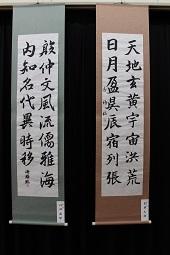 天地玄黃宇宙洪荒
日月盈昃辰宿列張
殷仲文風流儒雅海
內知名代異時移